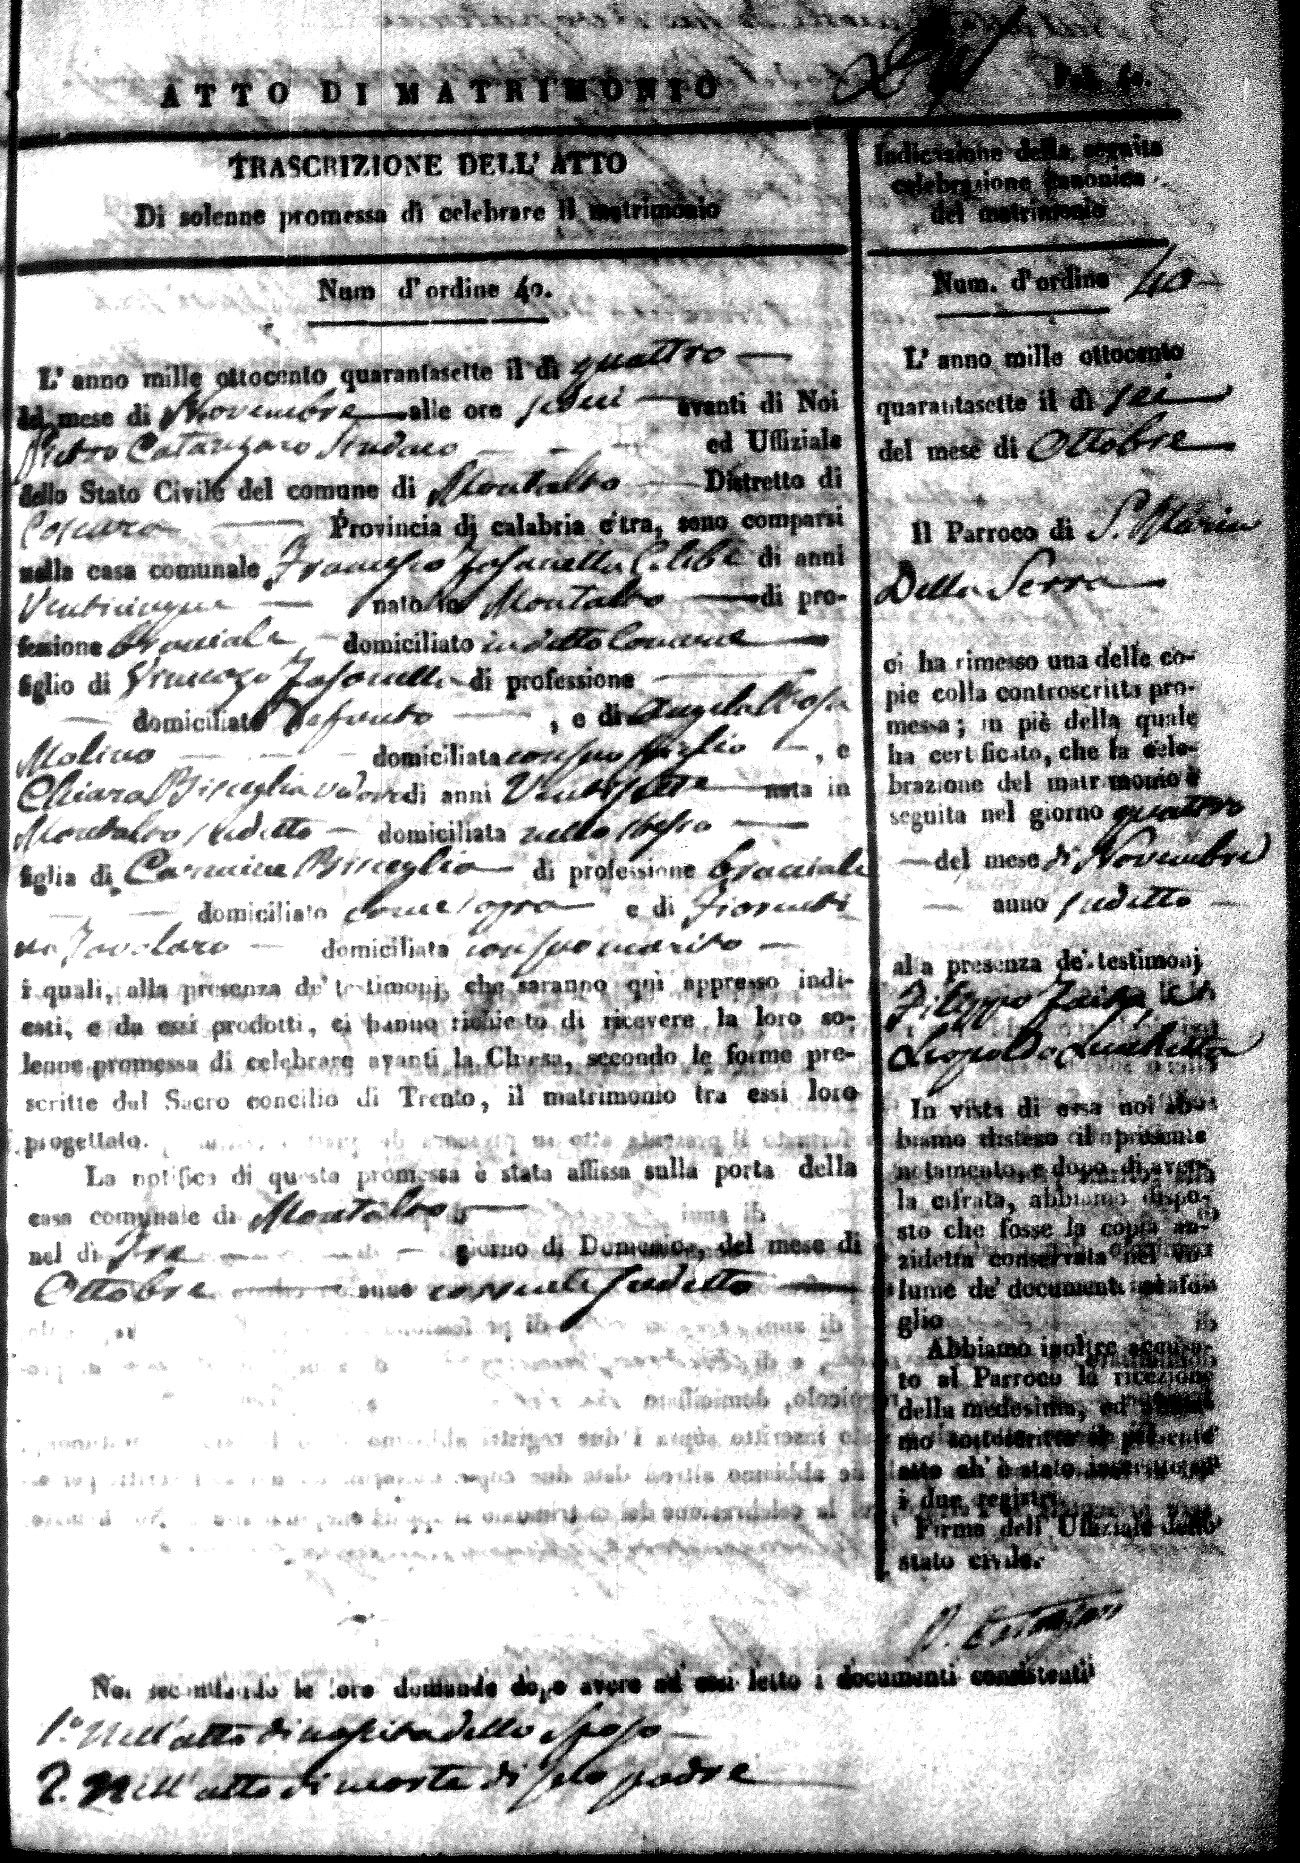 ATTO DI MATRIMONIO
TRASCRIZIONE DELL' ATTO
Di solenne promessa di celebrare il matrimonio
Num d'ordine 40.
L' anno mille ottocento quarantasette il dì quattro
del mese di Novembre alle ore sedici avanti di Noi
Pietro Catanzaro Sindaco ed Uffiziale
dello Stato Civile del comune di Montalto Distretto di
Cosenza Provincia di calabria citra, sono comparsi
nella casa comunale Francesco celibe di anni
Venticinque nato in Montalto di pro-
fessione Bracciale domiciliato in detto Comune
figlio di di professione
domiciliato Defunto , e di Angela Rosa
Molino domiciliata con suo figlio , e
Chiara Bisceglia vedova di anni Ventisette nata in
Montalto sudetto domiciliata nello stesso
figlia di Carmine Bisceglia di professione bracciale
domiciliato come sopra e di Fiorenti
na Tavolaro domiciliata con suo marito
i quali, alla presenza de' testimonj, che saranno qui appresso indi-
cati, e da essi prodotti, ci hanno richiesto di ricevere la loro so-
lenne promessa di celebrare avanti la Chiesa, secondo le forme pre-
scritte dal Sacro concilio di Trento, il matrimonio tra essi loro
progettato.
La notifica di questa promessa è stata affissa sulla porta della
casa comunale di Montalto
nel dì Tre giorno di Domenica, del mese di
Ottobre anno corrente sudetto
Indicazione della seguita
celebrazione canonica
del matrimonio
Num. d'ordine 40
L' anno mille ottocento
quarantasette il dì sei
del mese di Ottobre
Il Parroco di S. Maria
Della Serra
ci ha rimesso una delle co-
pie colla controscritta pro-
messa; in piè della quale
ha certificato, che la cele-
brazione del matrimonio è
seguita nel giorno quattro
del mese di Novembre
anno sudetto
alla presenza de' testimonj
Filippo
Leopoldo
In vista di essa noi ab-
biamo disteso il presente
notamento, e dopo di aver-
la cifrata, abbiamo dispo-
sto che fosse la copia an-
zidetta conservata nel vo-
lume de' documenti al fo-
glio
Abbiamo inoltre accusa-
to al Parroco la ricezione
della medesima, ed abbia-
mo sottoscritto il presente
atto ch' è stato inscritto su
i due registri.
Firma dell' Uffiziale dello
stato civile.
P. Catanzaro
Noi secondando le loro domande dopo avere ad essi letto i documenti consistenti
1.° Nell'atto di nascita dello sposo
2. Nell'atto di morte di suo padre